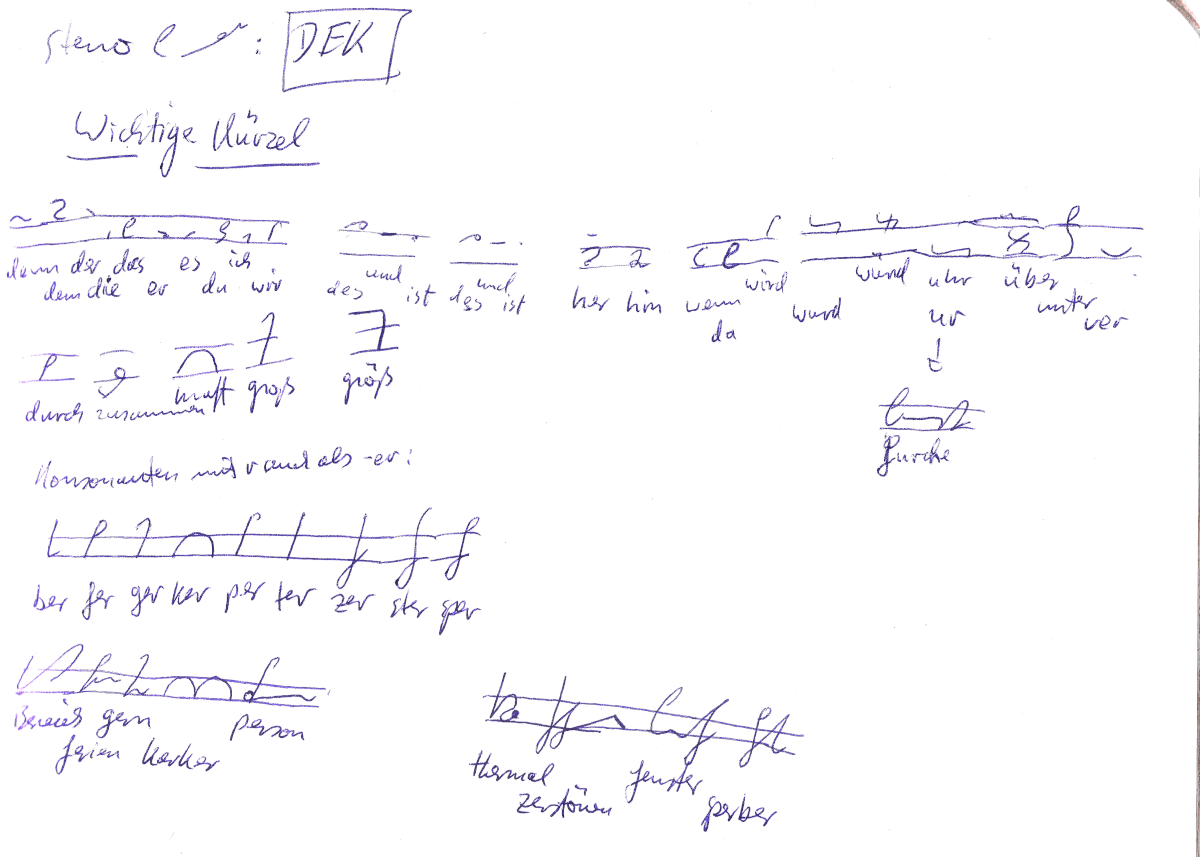 Steno : DEK
Wichtige Kürzel
denn der das es ich
dem die er du wir
des und ist des und ist
her hin wenn wird
da
wurd würd uhr über
ur unter ver
durch zusammen kraft groß größ
Furche
Konsonanten mit r und als -er:
ber fer ger ker per ter zer ster sper
Bereich gern person
ferien Kerker
thermal fenster
zerstören